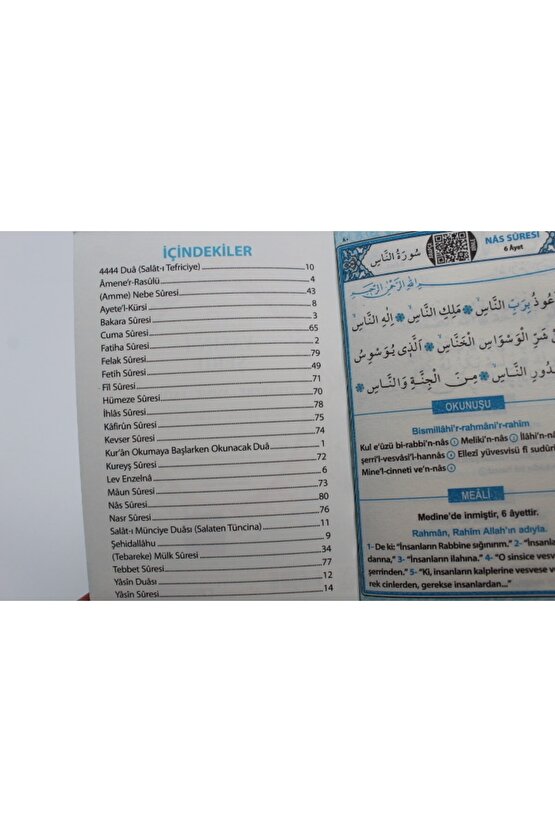 İÇİNDEKİLER
4444 Duâ (Salât-ı Tefriciye) 10
Âmene'r-Rasûlü 4
(Amme) Nebe Sûresi 43
Ayete'l-Kürsi 8
Bakara Sûresi 3
Cuma Sûresi 65
Fatiha Sûresi 2
Felak Sûresi 79
Fetih Sûresi 49
Fîl Sûresi 71
Hümeze Sûresi 70
İhlâs Sûresi 78
Kâfirûn Sûresi 75
Kevser Sûresi 74
Kur'ân Okumaya Başlarken Okunacak Duâ 1
Kureyş Sûresi 72
Lev Enzelnâ 6
Mâun Sûresi 73
Nâs Sûresi 80
Nasr Sûresi 76
Salât-ı Münciye Duâsı (Salaten Tüncina) 11
Şehidallâhu 9
(Tebareke) Mülk Sûresi 34
Tebbet Sûresi 77
Yâsîn Duâsı 12
Yâsîn Sûresi 14
٨٠
سُورَةُ النَّاسِ
NÂS SÛRESİ
6 Âyet
بِرَبِّ النَّاسِ مَلِكِ النَّاسِ اِلٰهِ النَّاسِ
شَرِّ الْوَسْوَاسِ الْخَنَّاسِ اَلَّذٖي يُوَسْوِسُ
النَّاسِ مِنَ الْجِنَّةِ وَالنَّاسِ
OKUNUŞU
Bismillâhi'r-rahmâni'r-rahîm
Kul e'ûzü bi-rabbi'n-nâs 1 Meliki'n-nâs 2 İlâhi'n-n
şerri'l-vesvâsi'l-hannâs 4 Ellezî yüvesvisü fî sudûri
Mine'l-cinneti ve'n-nâs 6
MEÂLİ
Medine'de inmiştir, 6 âyettir.
Rahmân, Rahîm Allah'ın adıyla.
1- De ki: "İnsanların Rabbine sığınırım." 2- "İnsanla
danna," 3- "İnsanların ilahına." 4- "O sinsice vesv
şerrinden." 5- "Ki, insanların kalplerine vesvese ve
rek cinlerden, gerekse insanlardan..."